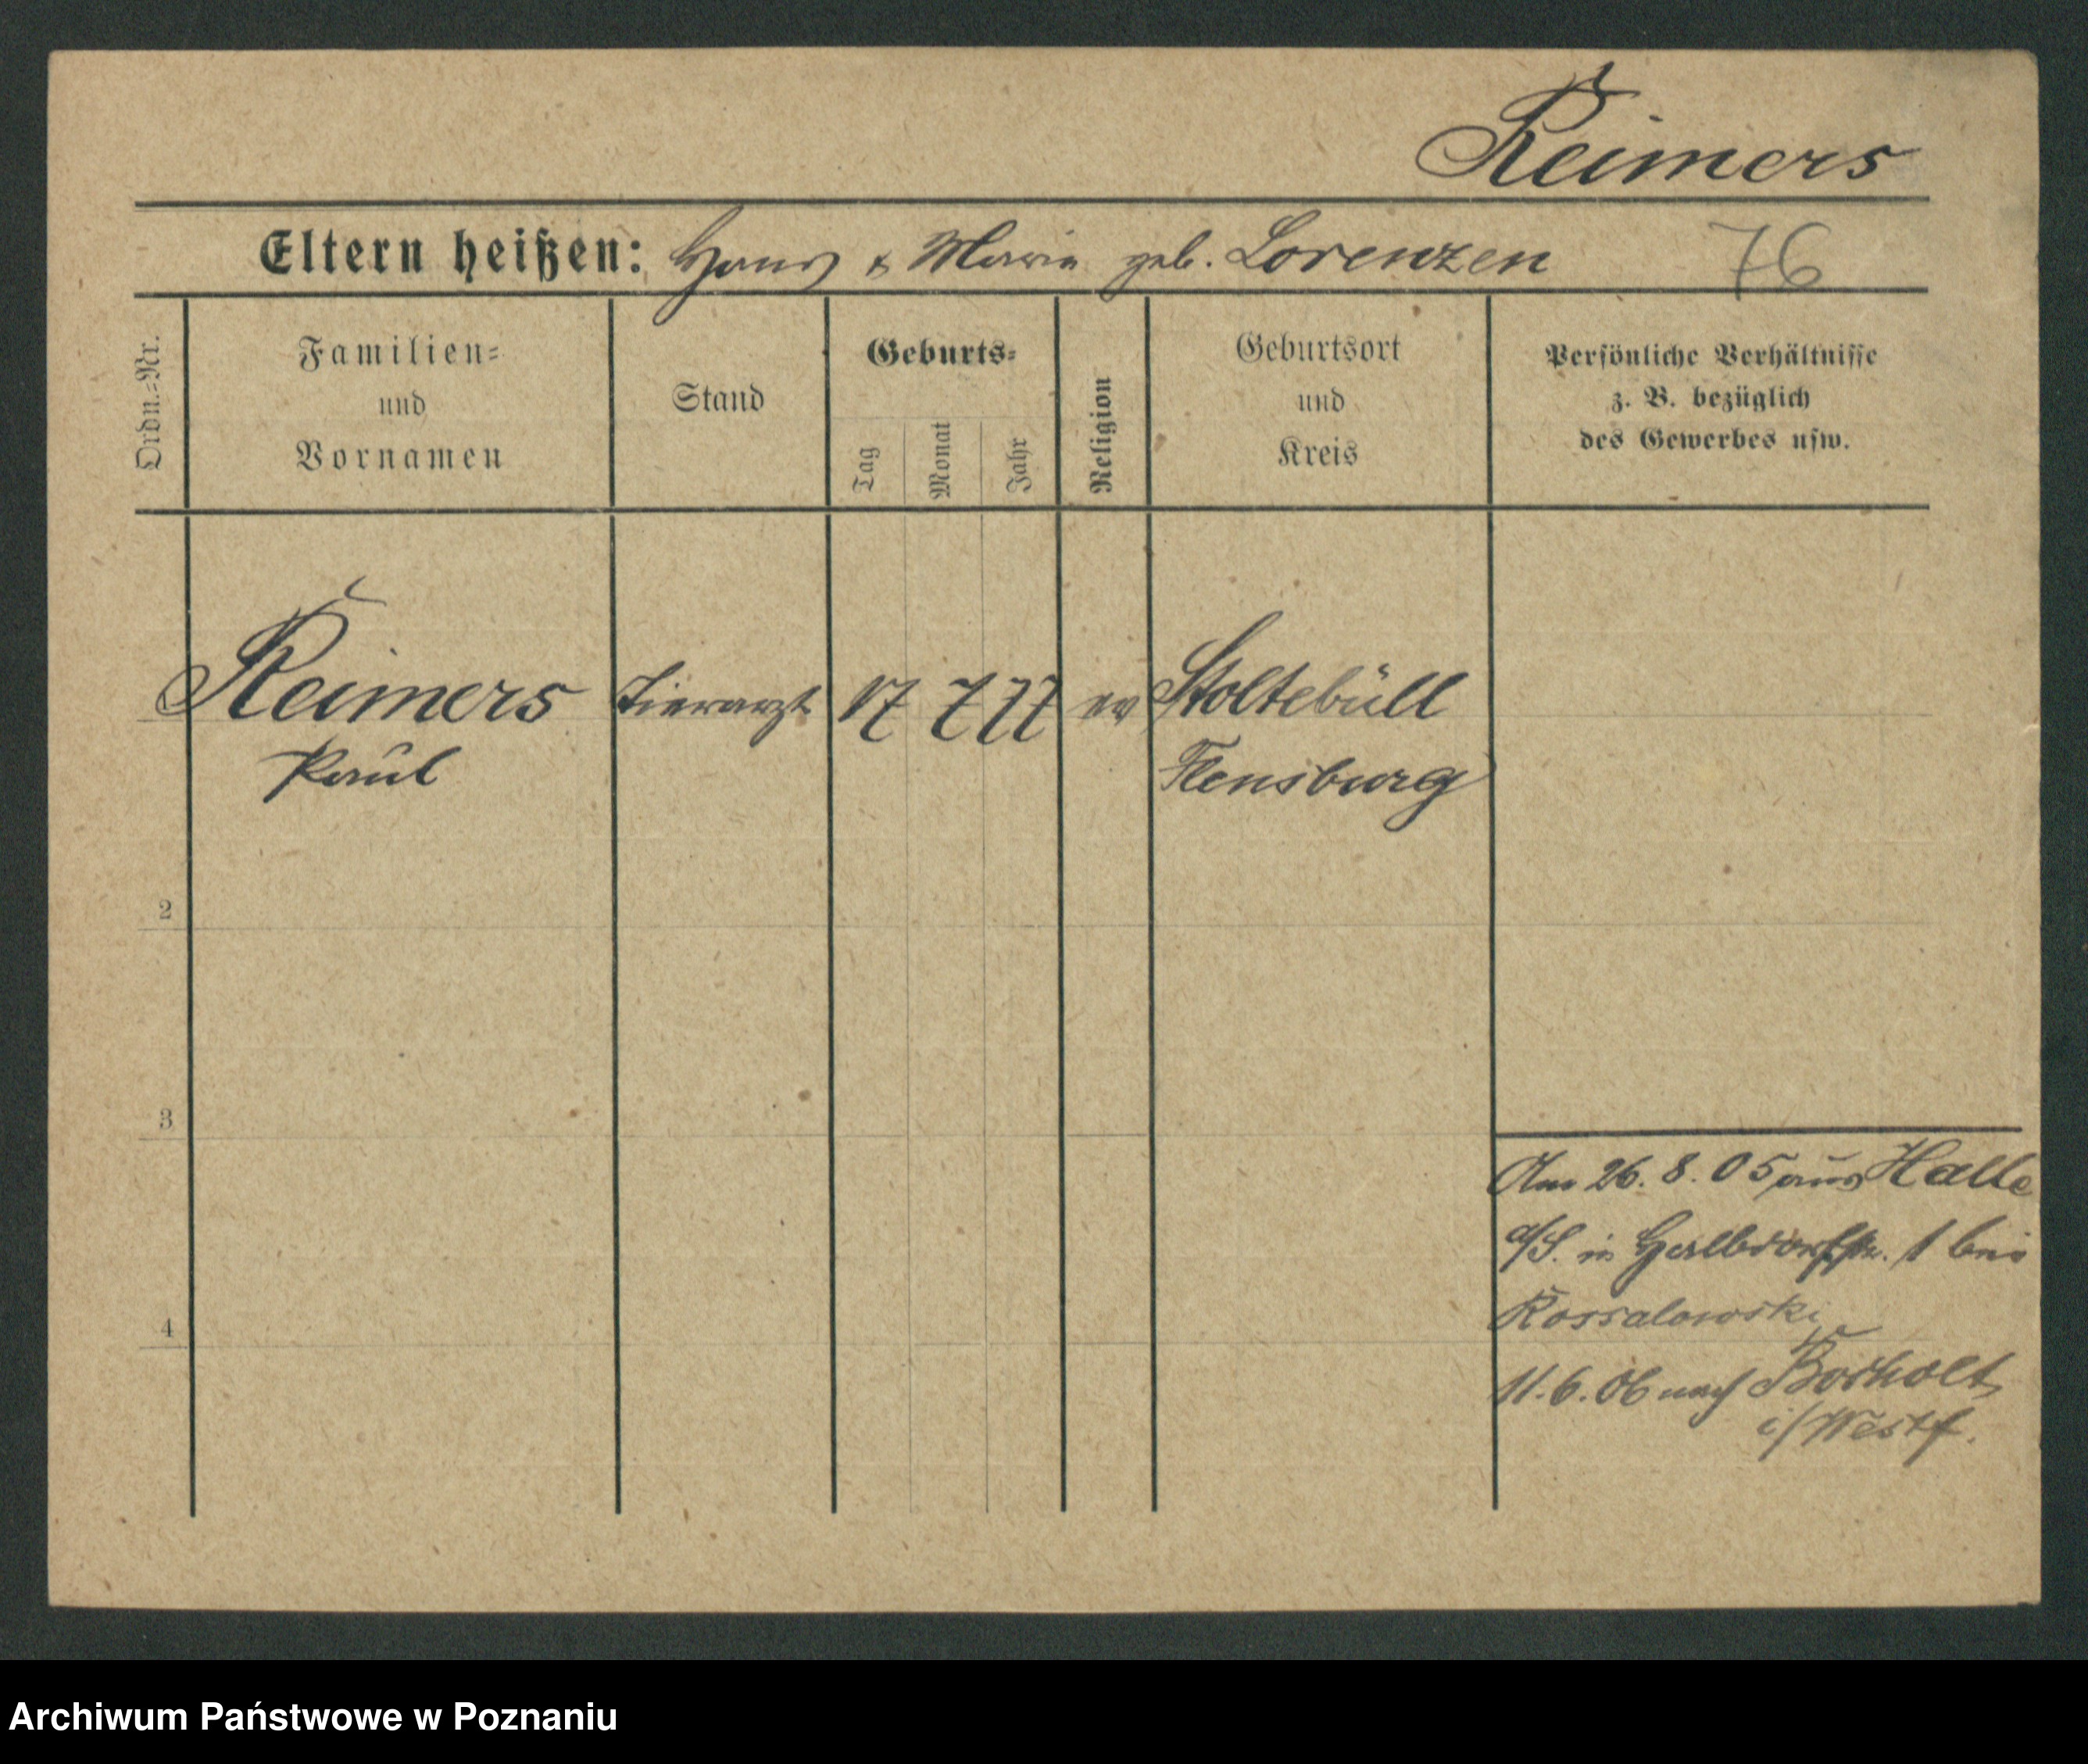 Reimers
Eltern heißen: Hans & Marie geb. Lorenzen 76
Ordn.=Nr.
Familien=
und
Vornamen
Stand
Geburts=
Tag
Monat
Jahr
Religion
Geburtsort
und
Kreis
Persönliche Verhältnisse
z. B. bezüglich
des Gewerbes usw.
Reimers Tierarzt 17 7 77 ev Stoltebüll
Paul Flensburg
2
3
4
Am 26. 8. 05 aus Halle
a/S. in 1 bei
11. 6. 06 nach Bocholt
i/Westf.
Archiwum Państwowe w Poznaniu